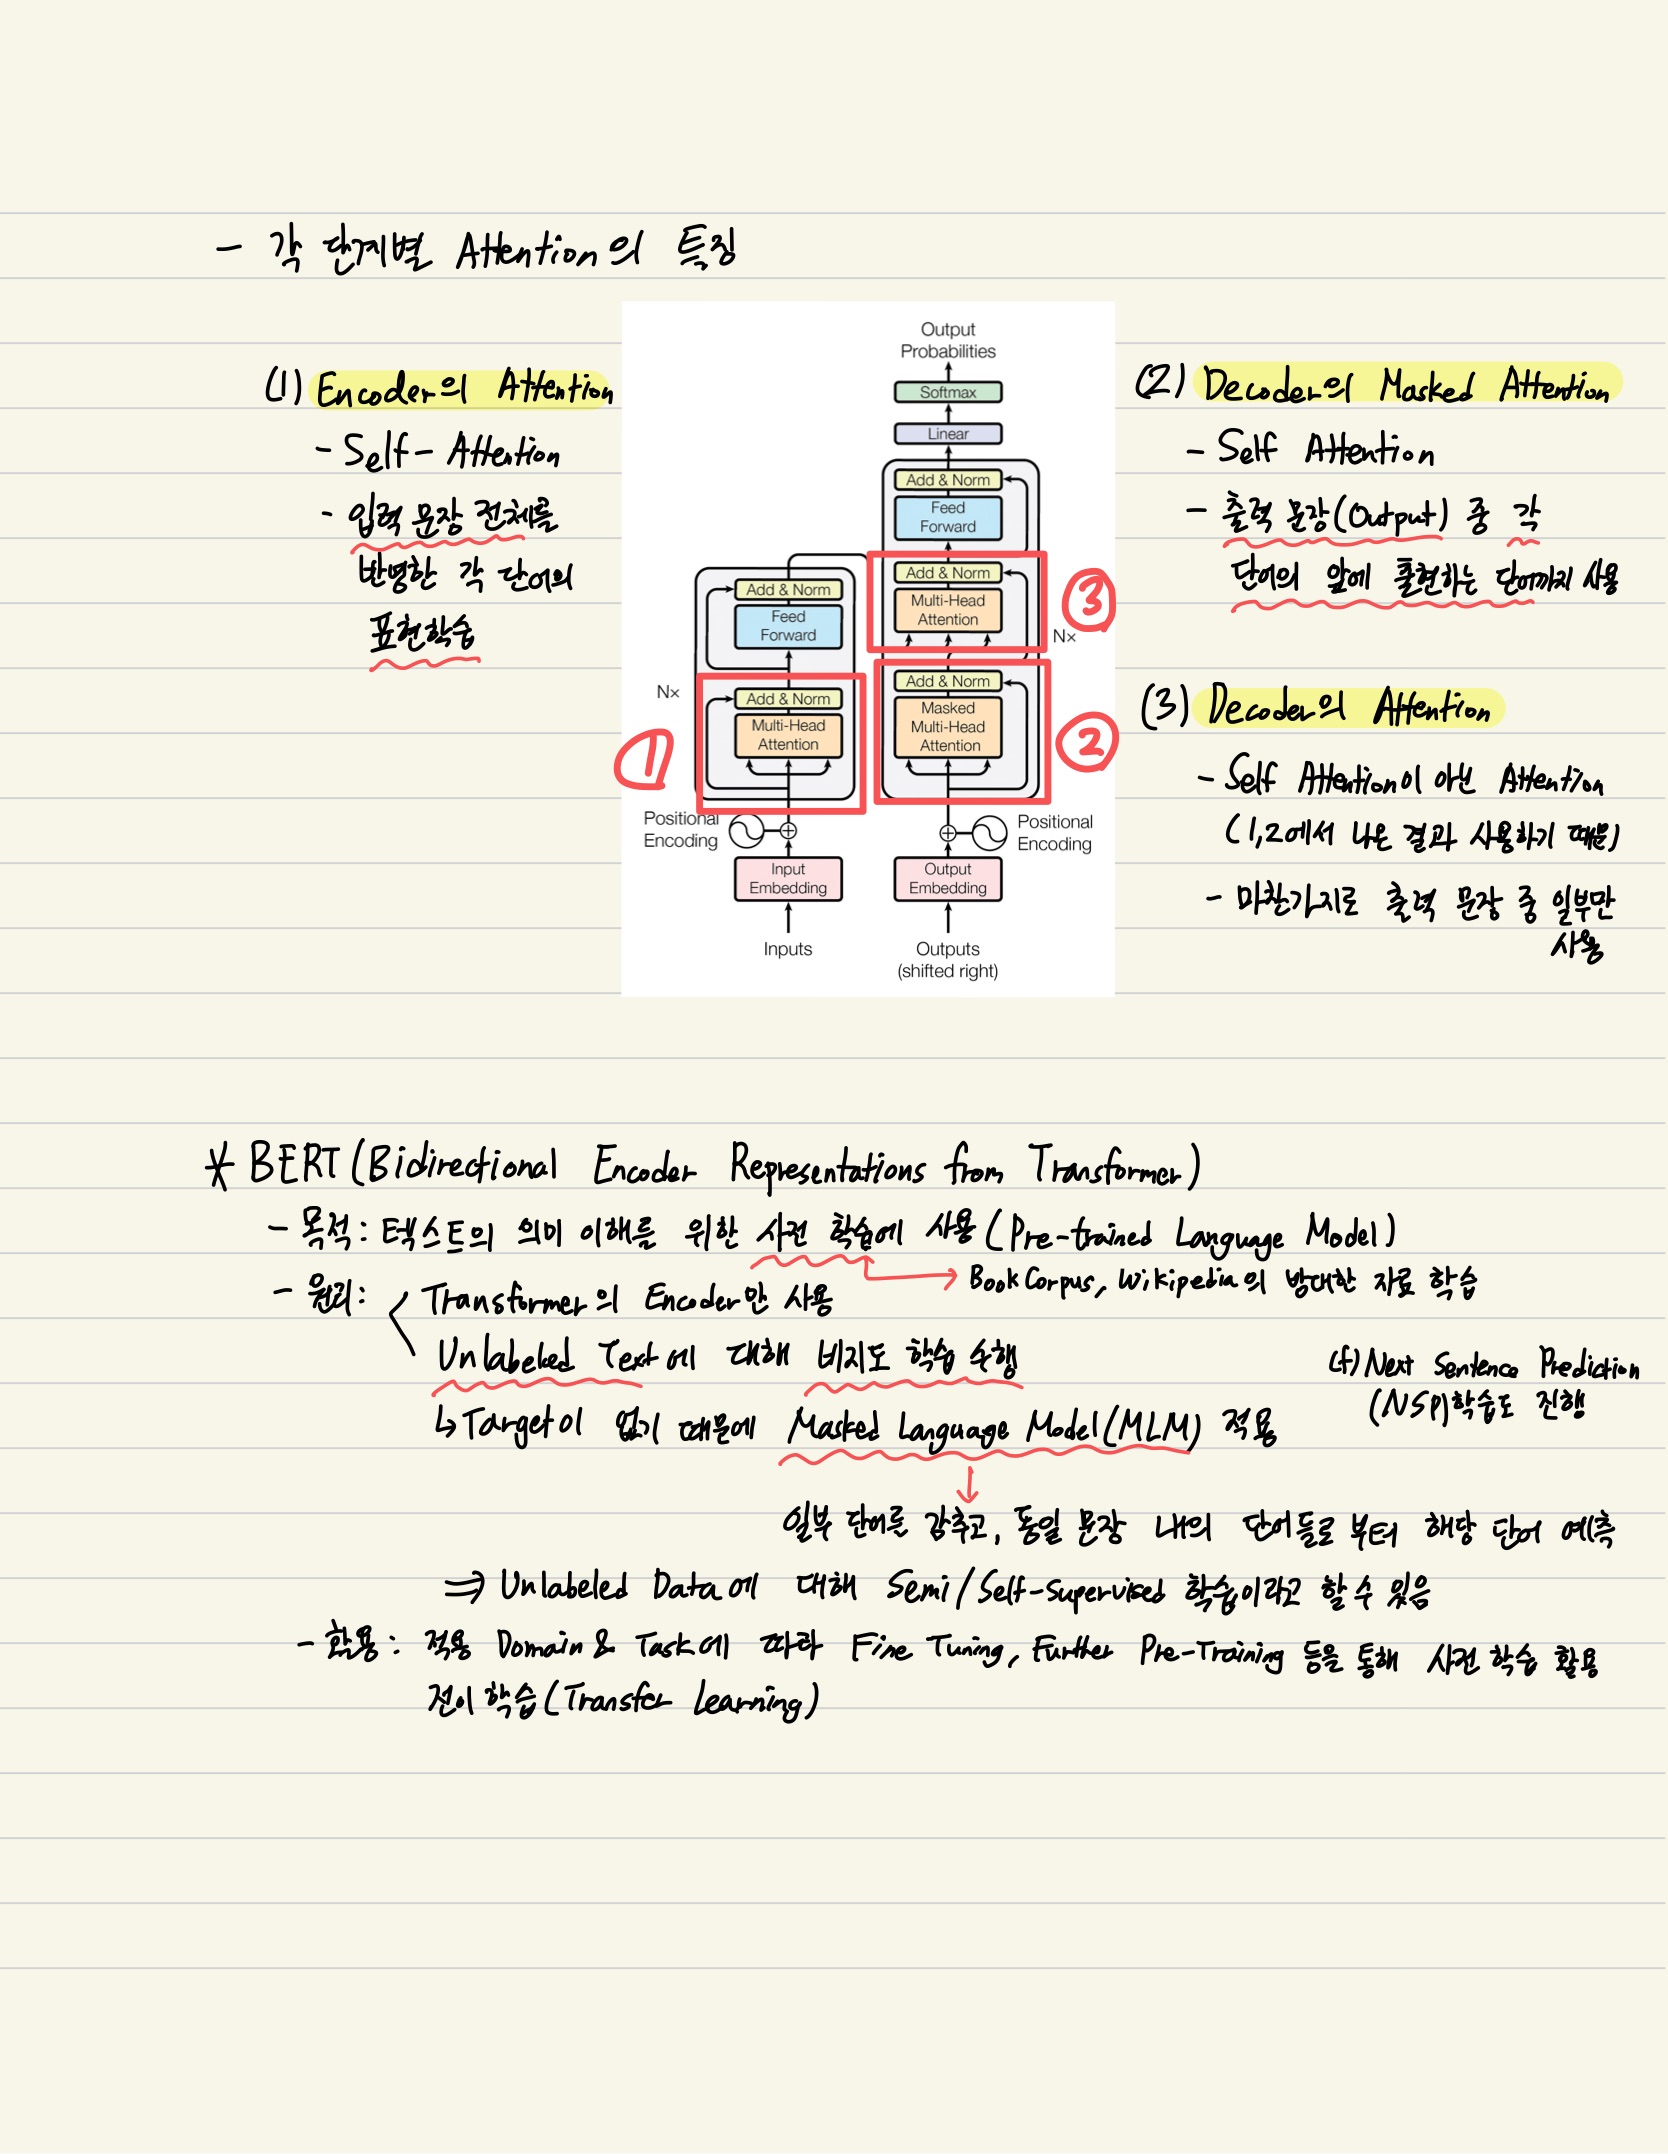 - 각 단계별 Attention의 특징
(1) Encoder의 Attention
- Self-Attention
- 입력 문장 전체를
반영한 각 단어의
표현학습
Output
Probabilities
Softmax
Linear
Add & Norm
Feed
Forward
Add & Norm
Multi-Head
Attention
③
Nx
Add & Norm
Masked
Multi-Head
Attention
②
Positional
Encoding
Output
Embedding
Outputs
(shifted right)
Add & Norm
Feed
Forward
Nx
Add & Norm
Multi-Head
Attention
①
Positional
Encoding
Input
Embedding
Inputs
(2) Decoder의 Masked Attention
- Self Attention
- 출력 문장(Output) 중 각
단어의 앞에 출현하는 단어까지 사용
(3) Decoder의 Attention
- Self Attention이 아닌 Attention
(1,2에서 나온 결과 사용하기 때문)
- 마찬가지로 출력 문장 중 일부만
사용
* BERT(Bidirectional Encoder Representations from Transformer)
- 목적: 텍스트의 의미 이해를 위한 사전 학습에 사용(Pre-trained Language Model)
→ BookCorpus, Wikipedia의 방대한 자료 학습
- 원리: Transformer의 Encoder만 사용
Unlabeled Text에 대해 비지도 학습 수행
↳ Target이 없기 때문에 Masked Language Model(MLM) 적용
(+) Next Sentence Prediction
(NSP)학습도 진행
일부 단어를 감추고, 동일 문장 내의 단어들로 부터 해당 단어 예측
⇒ Unlabeled Data에 대해 Semi/Self-supervised 학습이라고 할 수 있음
- 활용: 적용 Domain & Task에 따라 Fine Tuning, Further Pre-Training 등을 통해 사전 학습 활용
전이 학습(Transfer Learning)